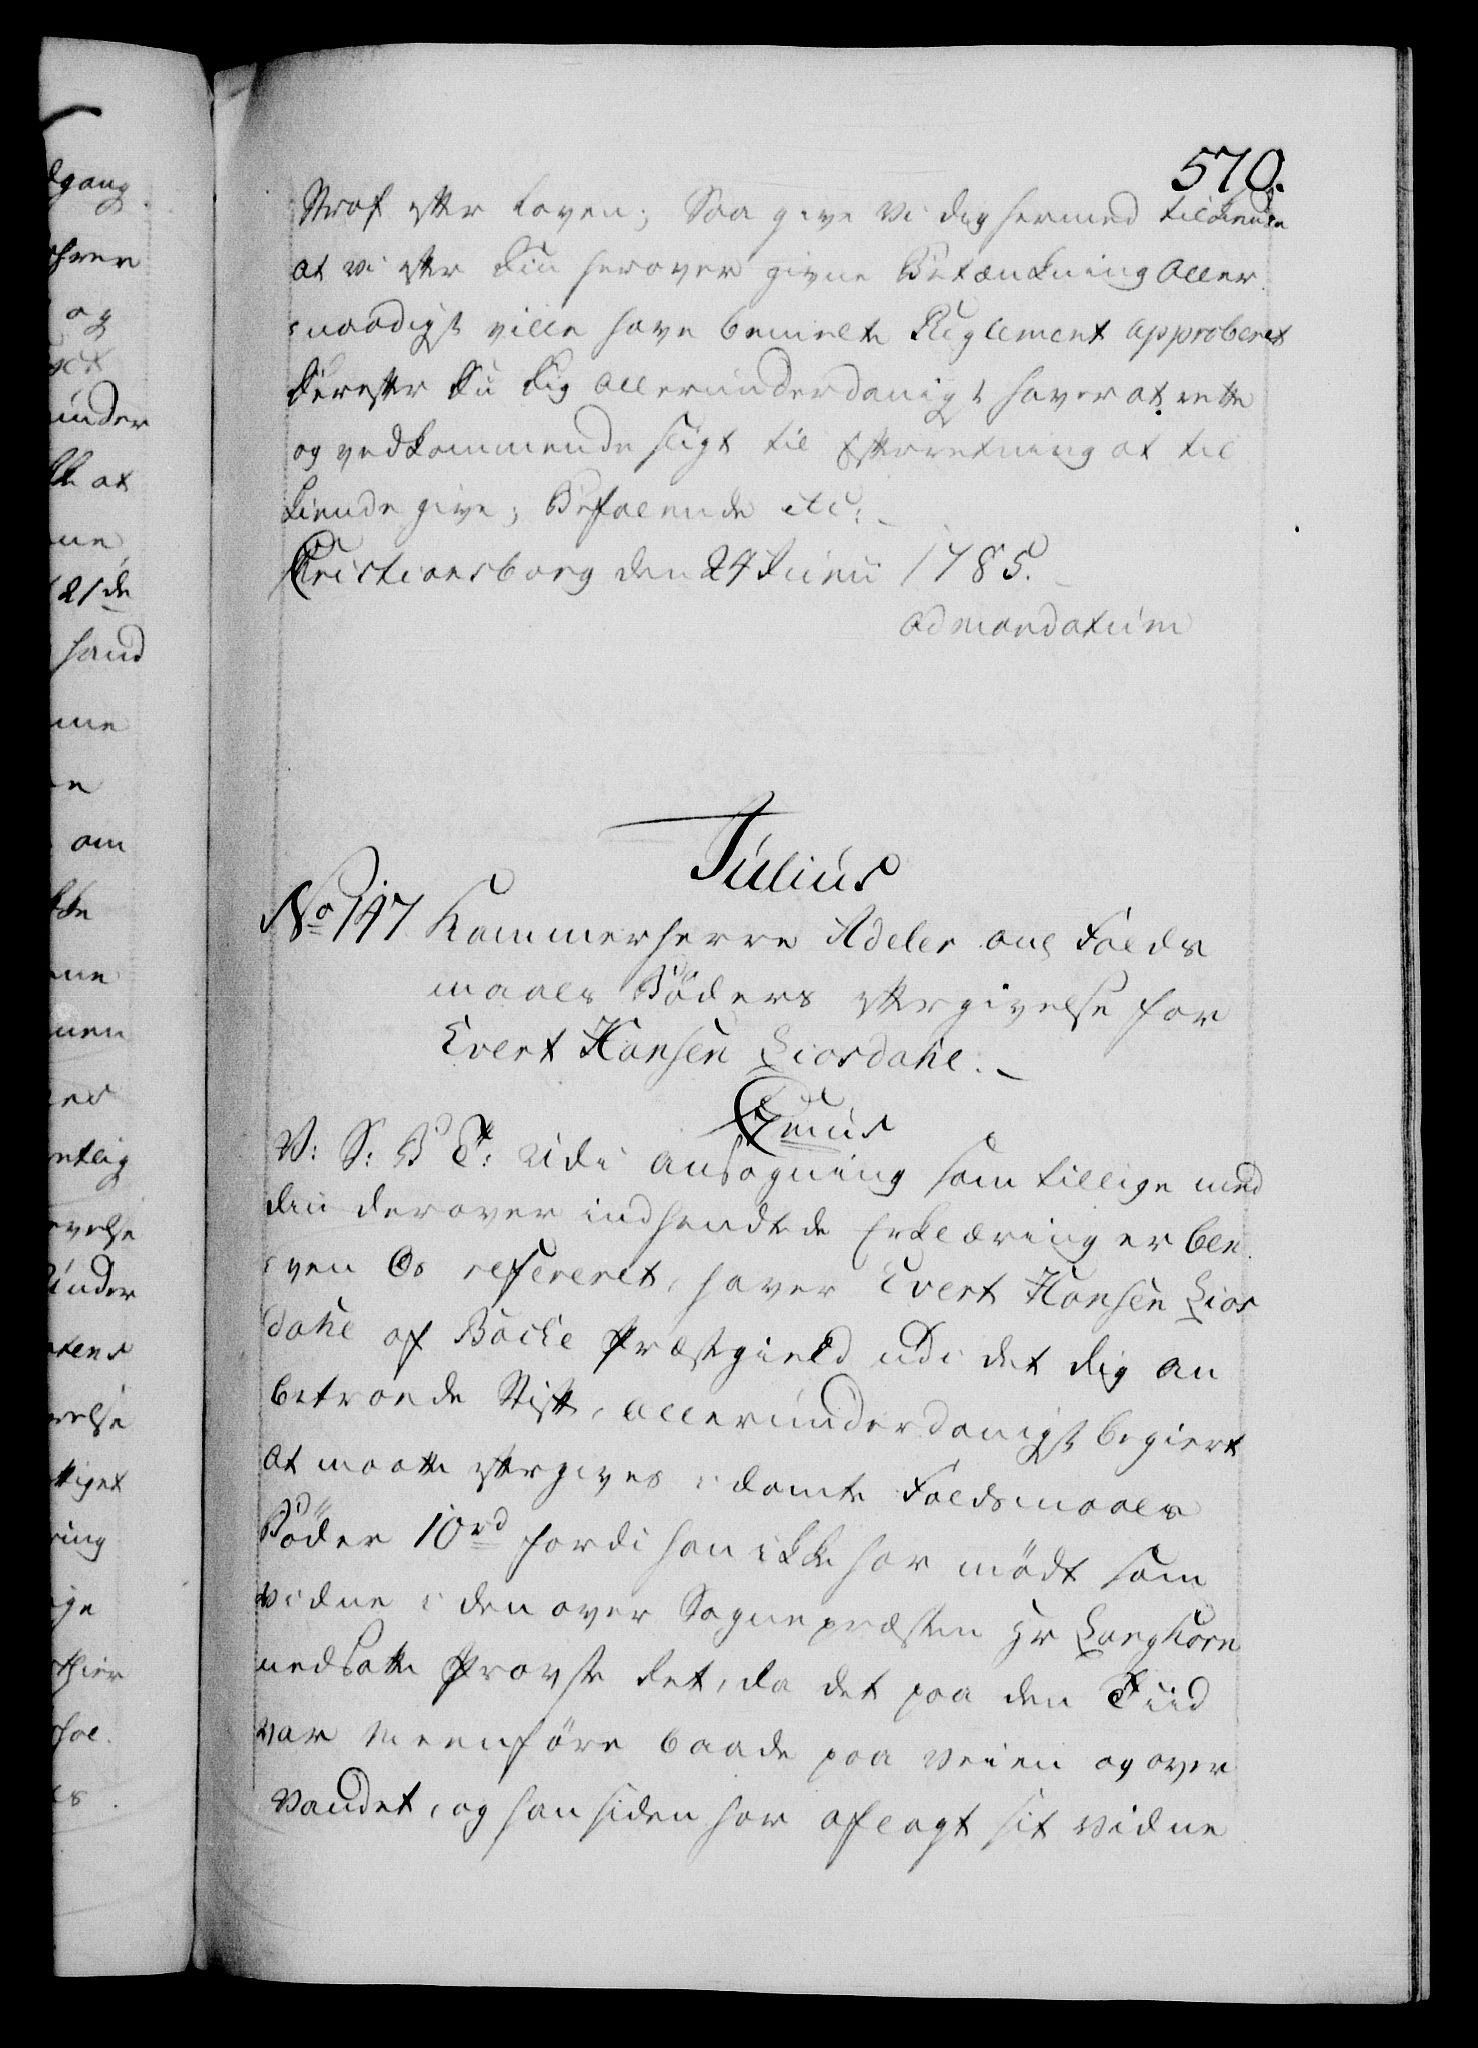 570.
Straf efter Loven; Saa give Vi dig hermed tilkiende
at vi efter din herover givne Betænkning Aller-
naadigst ville have bemelte Reglement approberet
Derefter du dig allerunderdanigst haver at rette
og vedkommende sligt til Efterretning at til
kiende give; Befalende etc:
Christiansborg den 24 Junii 1785.
ad mandatum
Julius
No 147 Kammerherre Adeler anl Falds
maals Böders eftergivelse for
Evert Hansen Liosdahl.
Genus
V: S: B T: Udi ansögning som tillige med
din derover indsendte Erklæring er ble
ven Os refereret, haver Evert Hansen Lios
dahl af Böche Præstegield udi det dig an
betroede Stift, allerunderdanigst begiert
at maatte eftergives idömte Faldsmaals
Böder 10 rd fordi han ikke har mödt som
vidne i den over Sognepræsten Hr Langhorn
nedsatte Provste Ret, da det paa den Tiid
var Meenföre baade paa veien og over
Vandet, og han siden har aflagt sit vidne
dgang
og
under
at
21de
haand
om